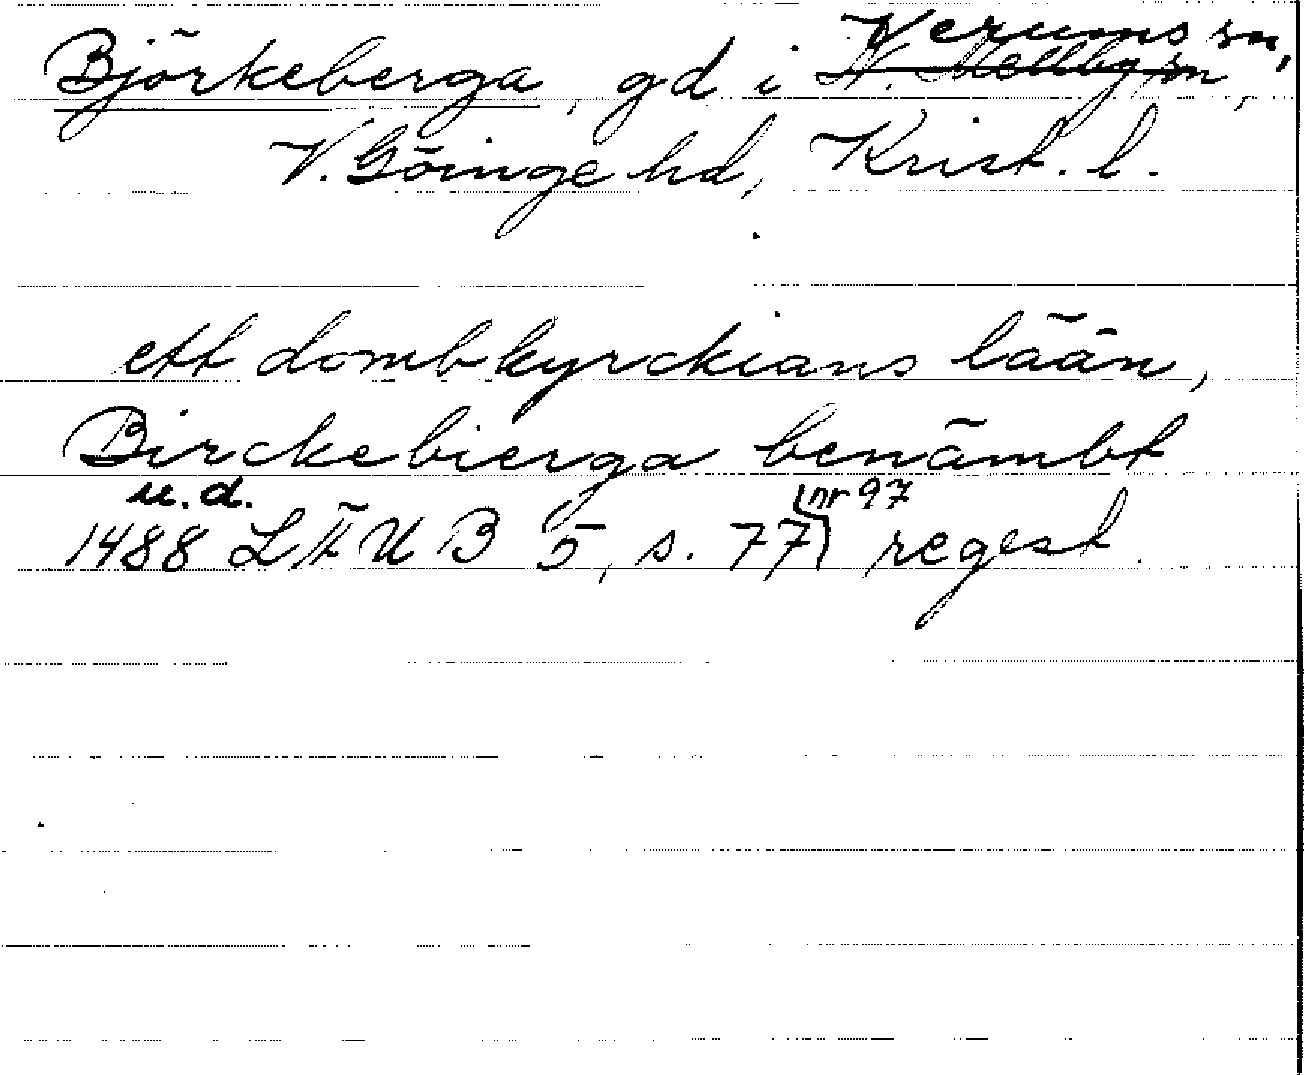 Verums sn,
Björkeberga, gd i N. Mellby sn,
V. Göinge hd, Krist. l.
ett dombkyrckians lään,
Birckebierga benämbt
u.d. nr 97
1488 LÄUB 5, s. 77 regest.